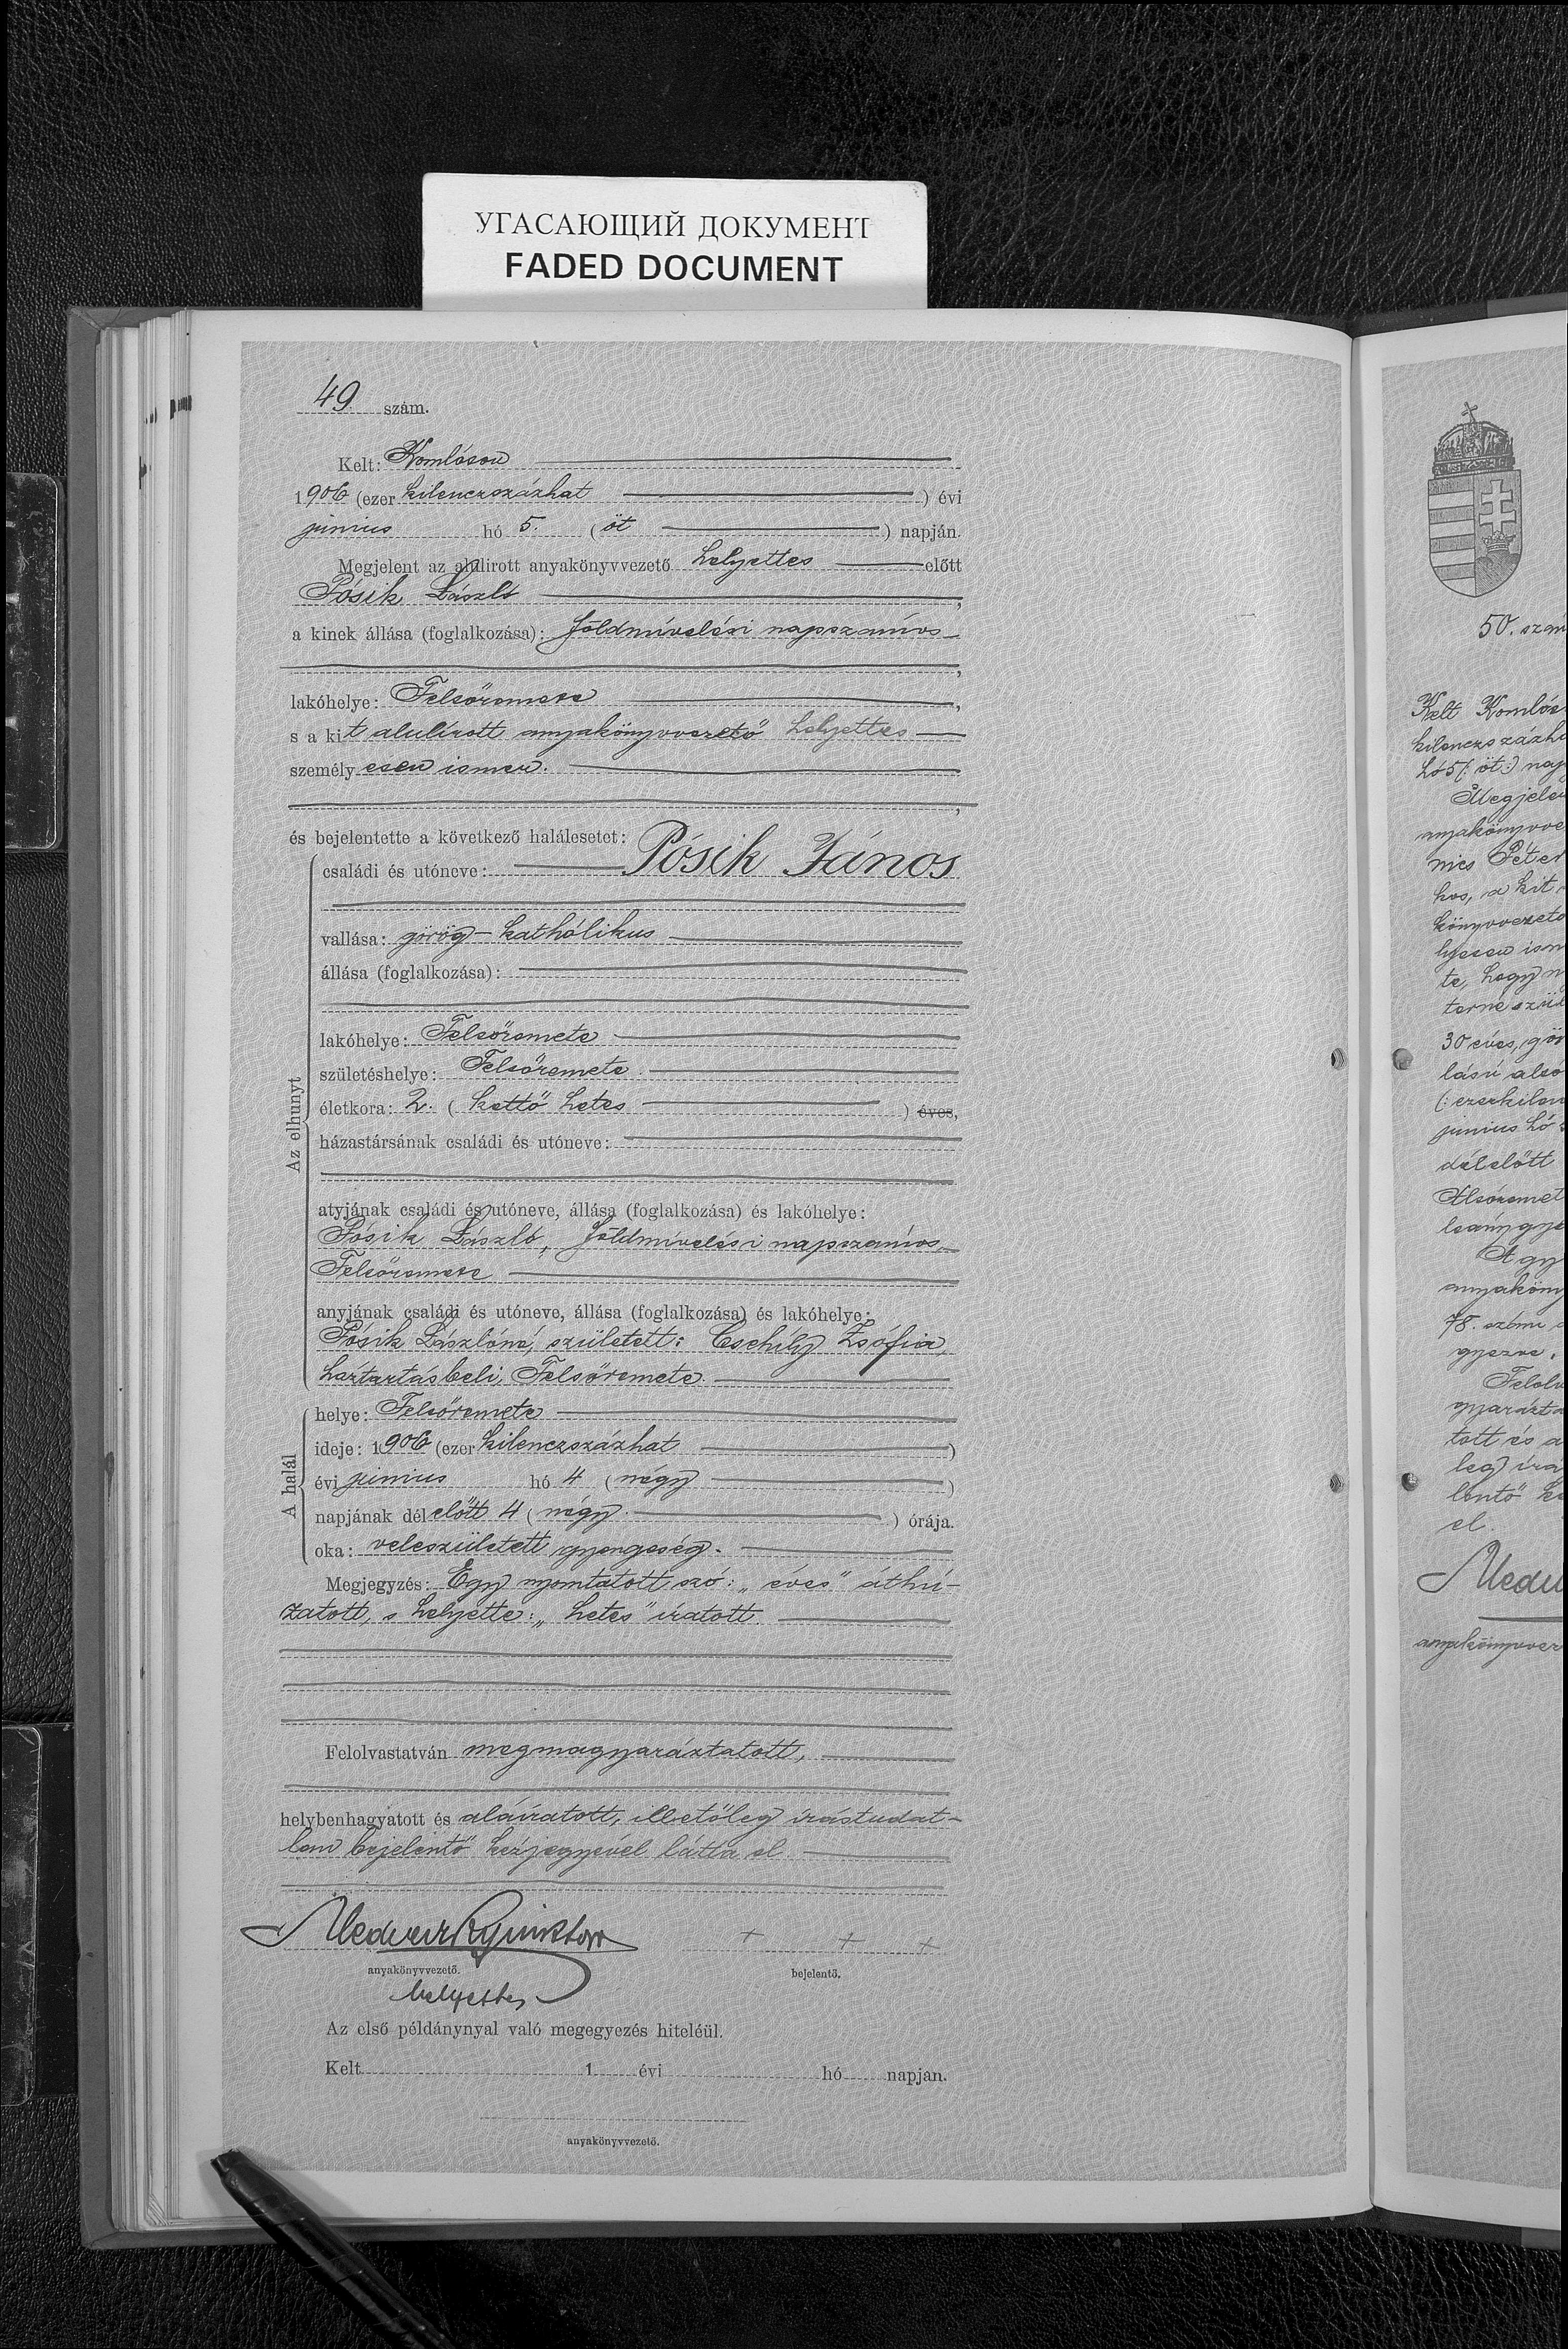 УГАСАЮЩИЙ ДОКУМЕНТ
FADED DOCUMENT
49 szám.
Kelt: Komlóson
1906 (ezer kilenczszázhat ) évi
junius hó 5. ( öt ) napján.
Megjelent az alulirott anyakönyvvezető helyettes előtt
Pósik László ,
a kinek állása (foglalkozása): földmívelési napszámos
,
lakóhelye: Felsőremete ,
s a kit alulírott anyakönyvvezető helyettes
személyesen ismer.
,
és bejelentette a következő halálesetet:
Az elhunyt
családi és utóneve: Pósik János
vallása: görög-kathólikus
állása (foglalkozása):
lakóhelye: Felsőremete
születéshelye: Felsőremete
életkora: 2. ( kettő hetes ) éves,
házastársának családi és utóneve:
atyjának családi és utóneve, állása (foglalkozása) és lakóhelye:
Pósik László, földmívelési napszámos,
Felsőremete
anyjának családi és utóneve, állása (foglalkozása) és lakóhelye:
Pósik Lászlóné, született: Zsófia,
háztartásbeli, Felsőremete.
A halál
helye: Felsőremete
ideje: 1906 (ezer kilenczszázhat )
évi junius hó 4 ( négy )
napjának délelőtt 4 ( négy. ) órája.
oka: veleszületett gyengeség.
Megjegyzés: Egy nyomtatott szó: „éves" áthú-
zatott, s helyette: „hetes" iratott.
Felolvastatván megmagyaráztatott,
helybenhagyatott és aláíratott, illetőleg írástudat-
lan bejelentő kézjegyével látta el.
+ + +
anyakönyvvezető. bejelentő.
helyettes
Az első példánynyal való megegyezés hiteléül.
Kelt 1 évi hó napjan.
anyakönyvvezető.
50. szám
Kelt Komlós
kilenczszázh
hó 5 (: öt :) nap
Megjele
anyakönyvve
nics Péter
kos, a kit
könyvvezető
lyesen ism
te, hogy n
terné szül
30 éves, gör
lású alsó
(: ezerkilen
junius hó
délelőtt
Alsóremet
leánygye
A gy
anyaköny
78. számú
gyezve.
Felolv
gyarázta
tott és a
leg írá
lentő ké
el.
anyakönyvvez